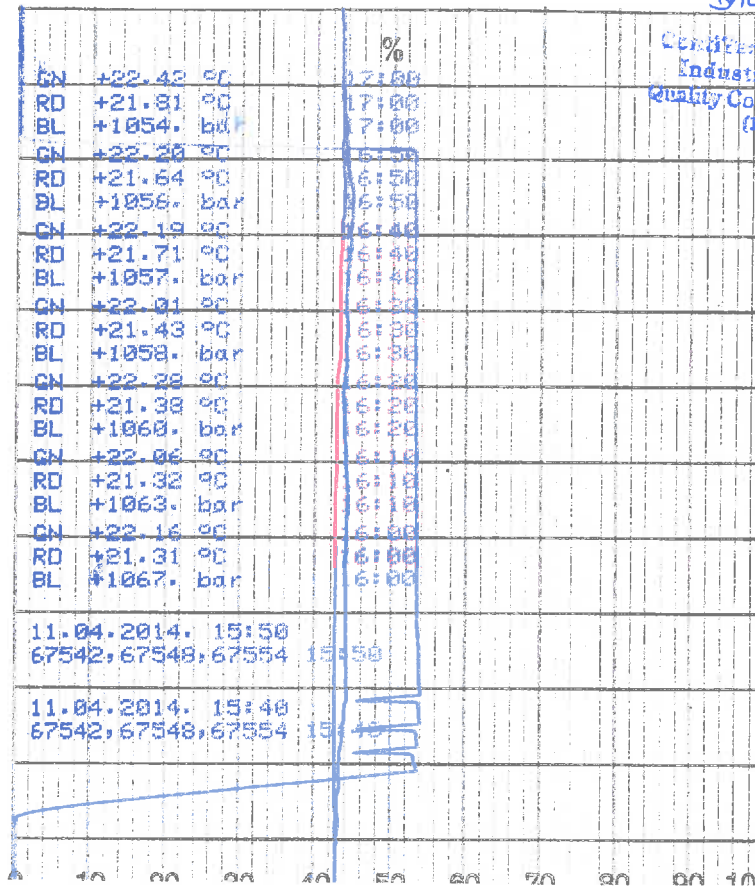 %
GN +22.42 °C 17:00
RD +21.81 °C 17:00
BL +1054. bar 17:00
GN +22.20 °C 16:50
RD +21.64 °C 16:50
BL +1056. bar 16:50
GN +22.19 °C 16:40
RD +21.71 °C 16:40
BL +1057. bar 16:40
GN +22.01 °C 16:30
RD +21.43 °C 16:30
BL +1058. bar 16:30
GN +22.28 °C 16:20
RD +21.38 °C 16:20
BL +1060. bar 16:20
GN +22.06 °C 16:10
RD +21.32 °C 16:10
BL +1063. bar 16:10
GN +22.16 °C 16:00
RD +21.31 °C 16:00
BL +1067. bar 16:00
11.04.2014. 15:50
67542,67548,67554 15:50
11.04.2014. 15:40
67542,67548,67554 15:40
0 10 20 30 40 50 60 70 80 90 10
Indust
Quality Co